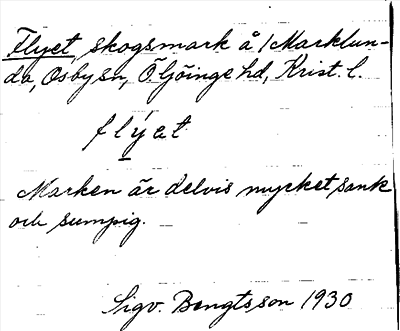 Flyet, skogsmark å 1 Marklun-
da, Osby sn, Ö Göinge hd, Krist. l.
flýet
Marken är delvis mycket sank
och sumpig.
Sigv. Bengtsson 1930